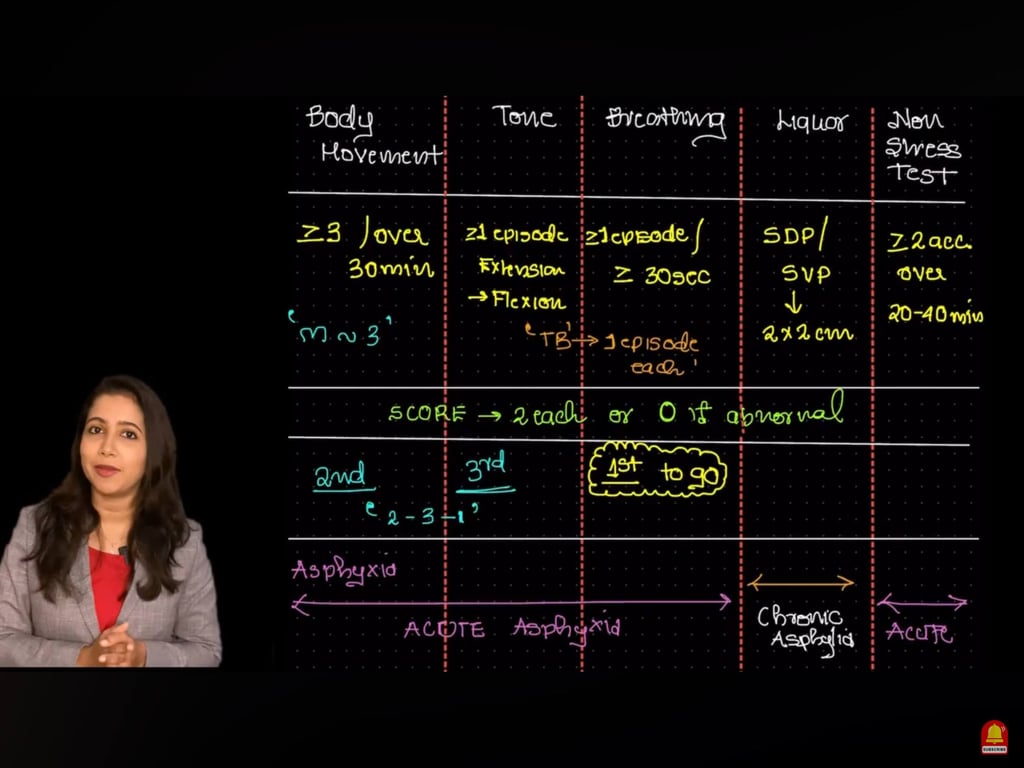 Body
Movement
Tone
Breathing
Liquor
Non
Stress
Test
≥3 / over
30min
'm ~ 3'
≥1 episode
Extension
→ Flexion
≥1 episode /
≥ 30sec
'TB' → 1 episode
each'
SDP/
SVP
↓
2 x 2 cm
≥2 acc.
over
20-40 min
SCORE → 2 each or 0 if abnormal
2nd
3rd
1st to go
'2-3-1'
Asphyxia
ACUTE Asphyxia
Chronic
Asphyxia
ACUTE
SUBSCRIBE